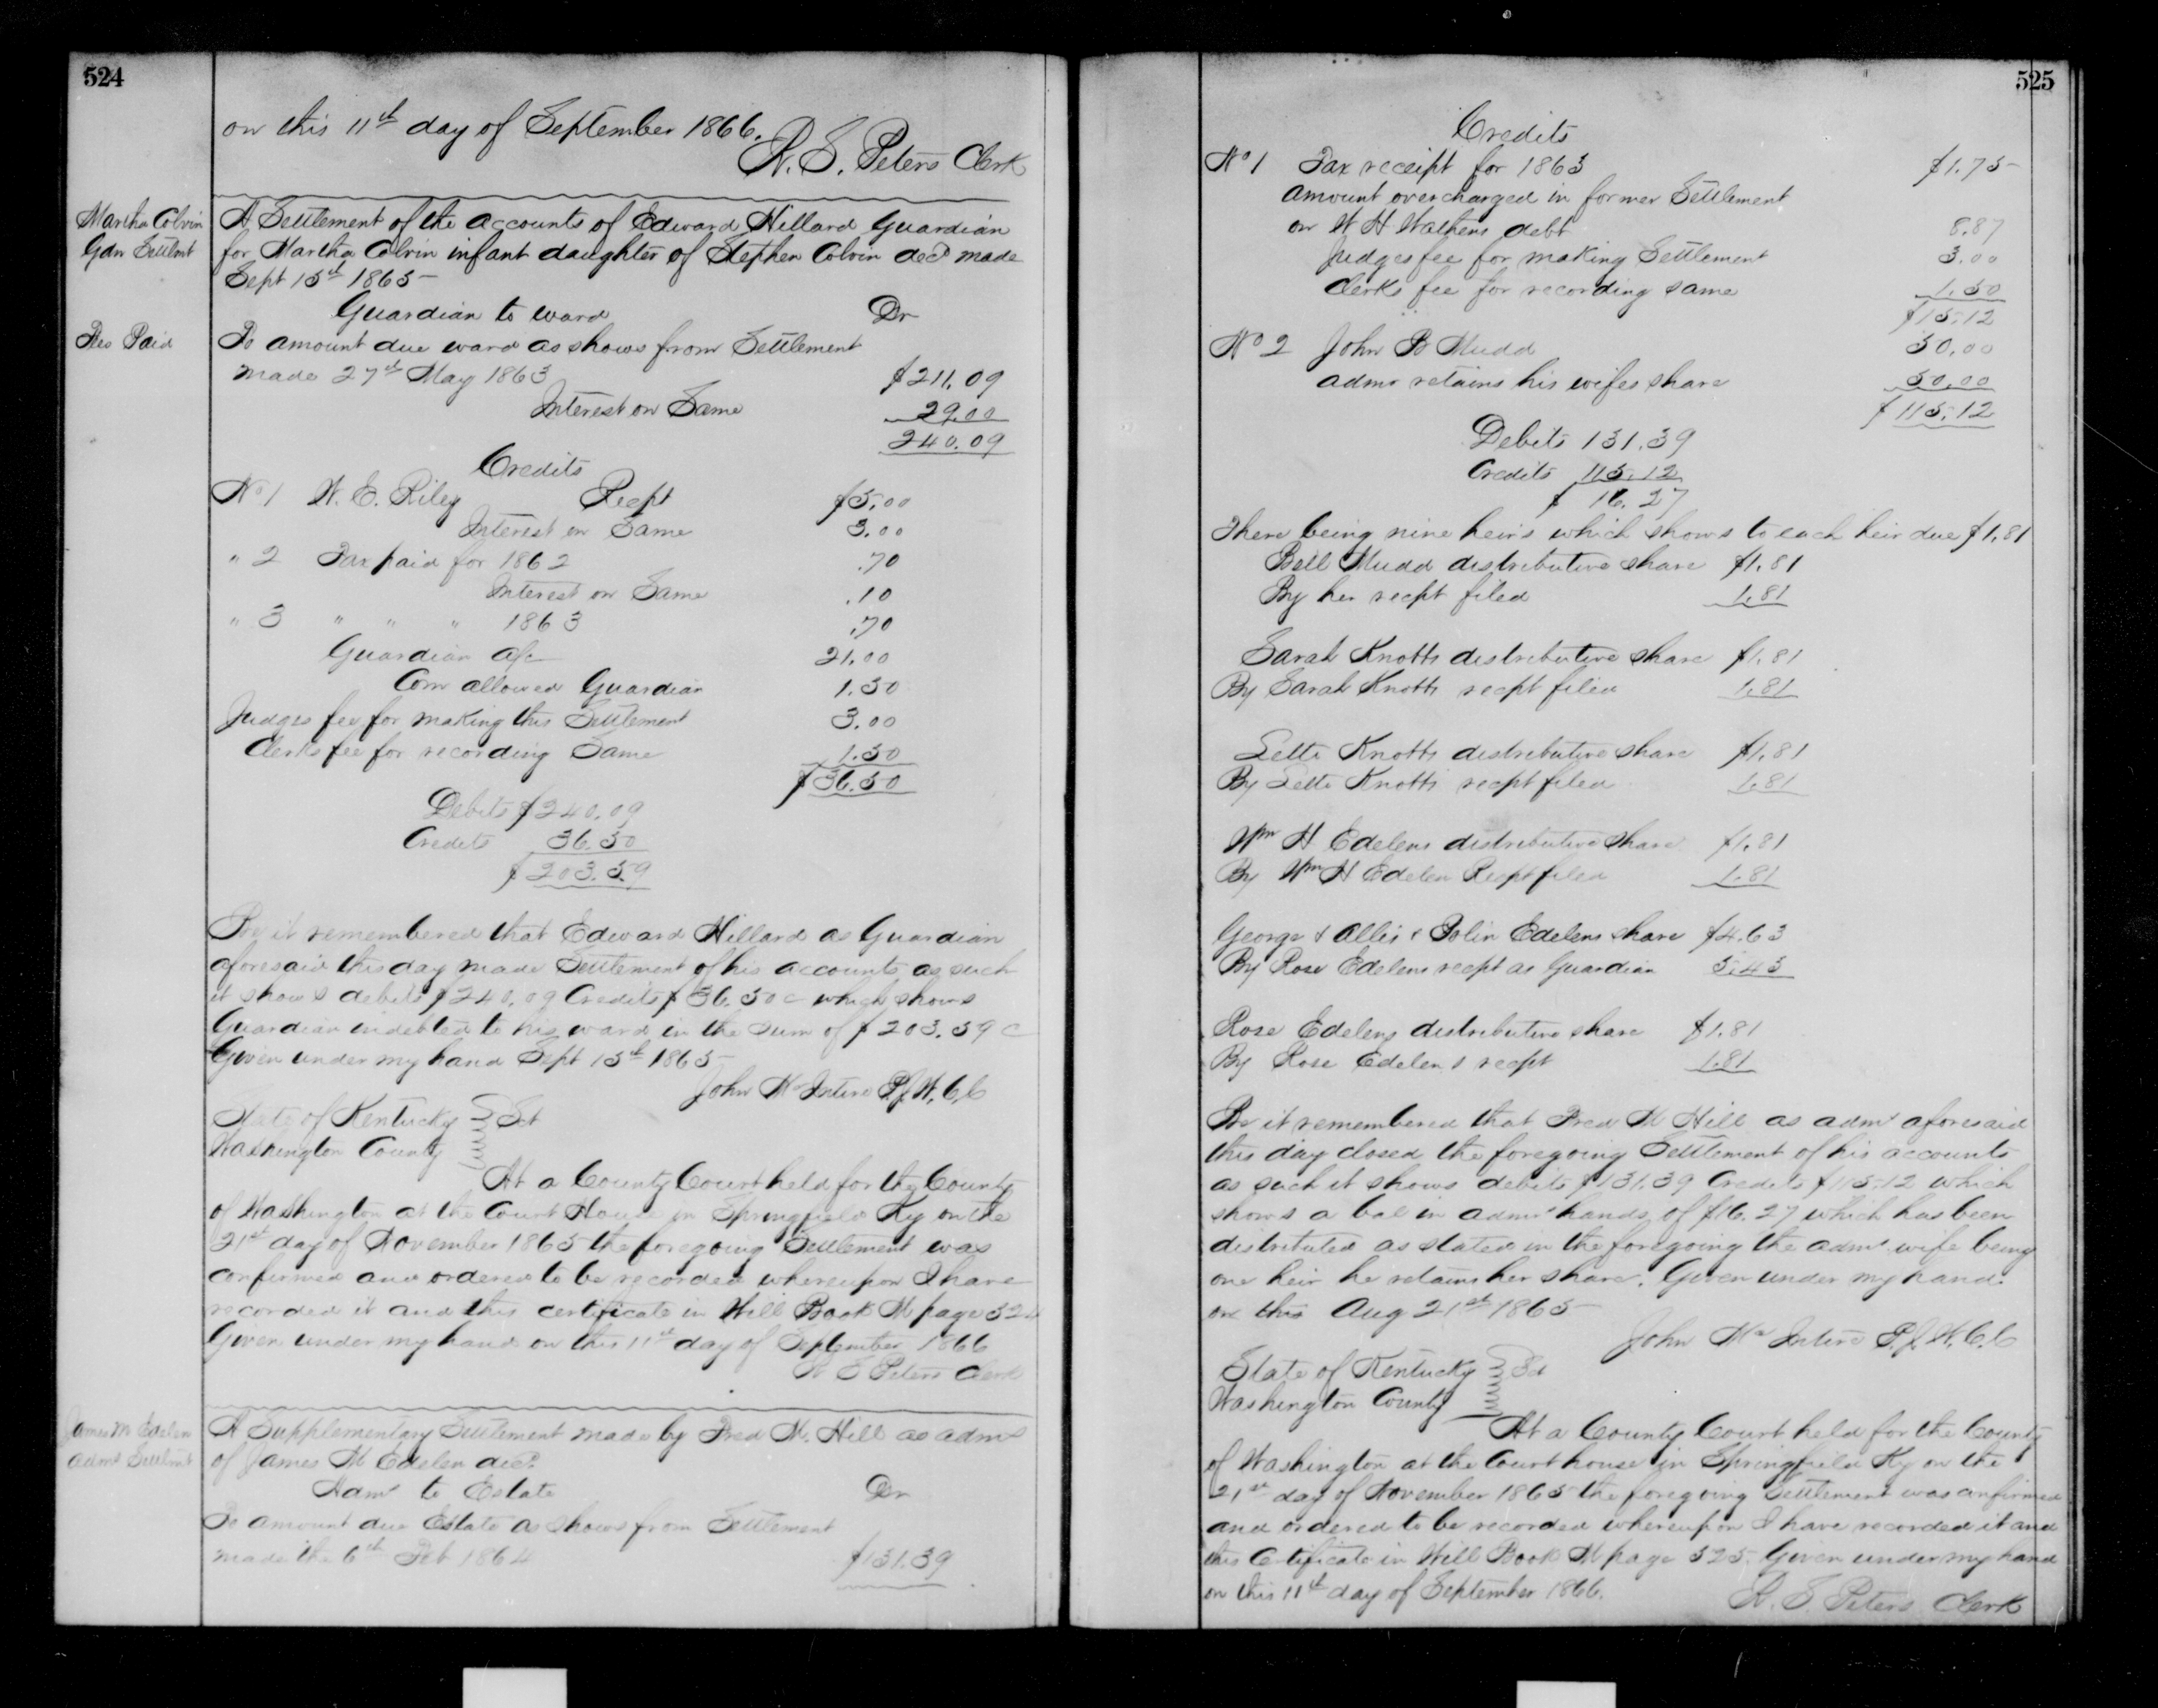 524
on this 11th day of September 1866.
W. S. Peters Clerk
Martha Colvin
Gdn Settlmt
A Settlement of the accounts of Edward Hillard Guardian
for Martha Colvin infant daughter of Stephen Colvin decd made
Sept 15th 1865
Guardian to ward Dr
Fees Paid
To amount due ward as shows from Settlement
made 27th May 1863 $211.09
Interest on Same 29.00
240.09
Credits
No 1 W. E. Riley Recpt $5.00
Interest on Same 3.00
" 2 Tax paid for 1862 .70
Interest on Same .10
" 3 " " " 1863 .70
Guardian a/c 21.00
Com allowed Guardian 1.50
Judges fee for making this Settlement 3.00
Clerks fee for recording Same 1.50
$36.50
Debits $240.09
Credits 36.50
$203.59
Be it remembered that Edward Hillard as Guardian
aforesaid this day made Settlement of his accounts as such
it shows debits $240.09 Credits $36.50c which shows
Guardian indebted to his ward in the sum of $203.59c
Given under my hand Sept 15th 1865
John McIntire P.J.W.C.C
State of Kentucky Sct
Washington County
At a County Court held for the County
of Washington at the Court House in Springfield Ky on the
21st day of November 1865 the foregoing Settlement was
confirmed and ordered to be recorded whereupon I have
recorded it and this certificate in Will Book M page 524
Given under my hand on this 11th day of September 1866
W S Peters Clerk
James M Edelen
admr Settlmt
A Supplementary Settlement made by Fred M. Hill as admr
of James M Edelen decd.
Admr to Estate Dr
To amount due Estate as shows from Settlement
made the 6th Feb 1864 $131.39
525
Credits
No 1 Tax receipt for 1863 $1.75
amount overcharged in former Settlement
on W H Wathens debt 8.87
Judges fee for making Settlement 3.00
Clerks fee for recording same 1.50
$15.12
No 2 John B Mudd 50.00
admr retains his wifes share 50.00
$115.12
Debits 131.39
Credits 115.12
$16.27
There being nine heirs which shows to each heir due $1.81
Bell Mudd distributive share $1.81
By her recpt filed 1.81
Sarah Knotts distributive share $1.81
By Sarah Knotts recpt filed 1.81
Lette Knotts distributive share $1.81
By Lette Knotts recpt filed 1.81
Wm H Edelens distributive share $1.81
By Wm H Edelen Recpt filed 1.81
George & Allis & Edelens share $4.63
By Rose Edelens recpt as Guardian 5.43
Rose Edelens distributive share $1.81
By Rose Edelens recpt 1.81
Be it remembered that Fred M Hill as admr aforesaid
this day closed the foregoing Settlement of his accounts
as such it shows debits $131.39 Credits $115.12 which
shows a bal in admrs hands of $16.27 which has been
distributed as stated in the foregoing the admr wife being
one heir he retains her share. Given under my hand
on this Aug 21st 1865
John McIntire P.J.W.C.C
State of Kentucky Sct
Washington County
At a County Court held for the County
of Washington at the Court house in Springfield Ky on the
21st day of November 1865 the foregoing Settlement was confirmed
and ordered to be recorded whereupon I have recorded it and
this Certificate in Will Book M page 525. Given under my hand
on this 11th day of September 1866.
W. S. Peters Clerk